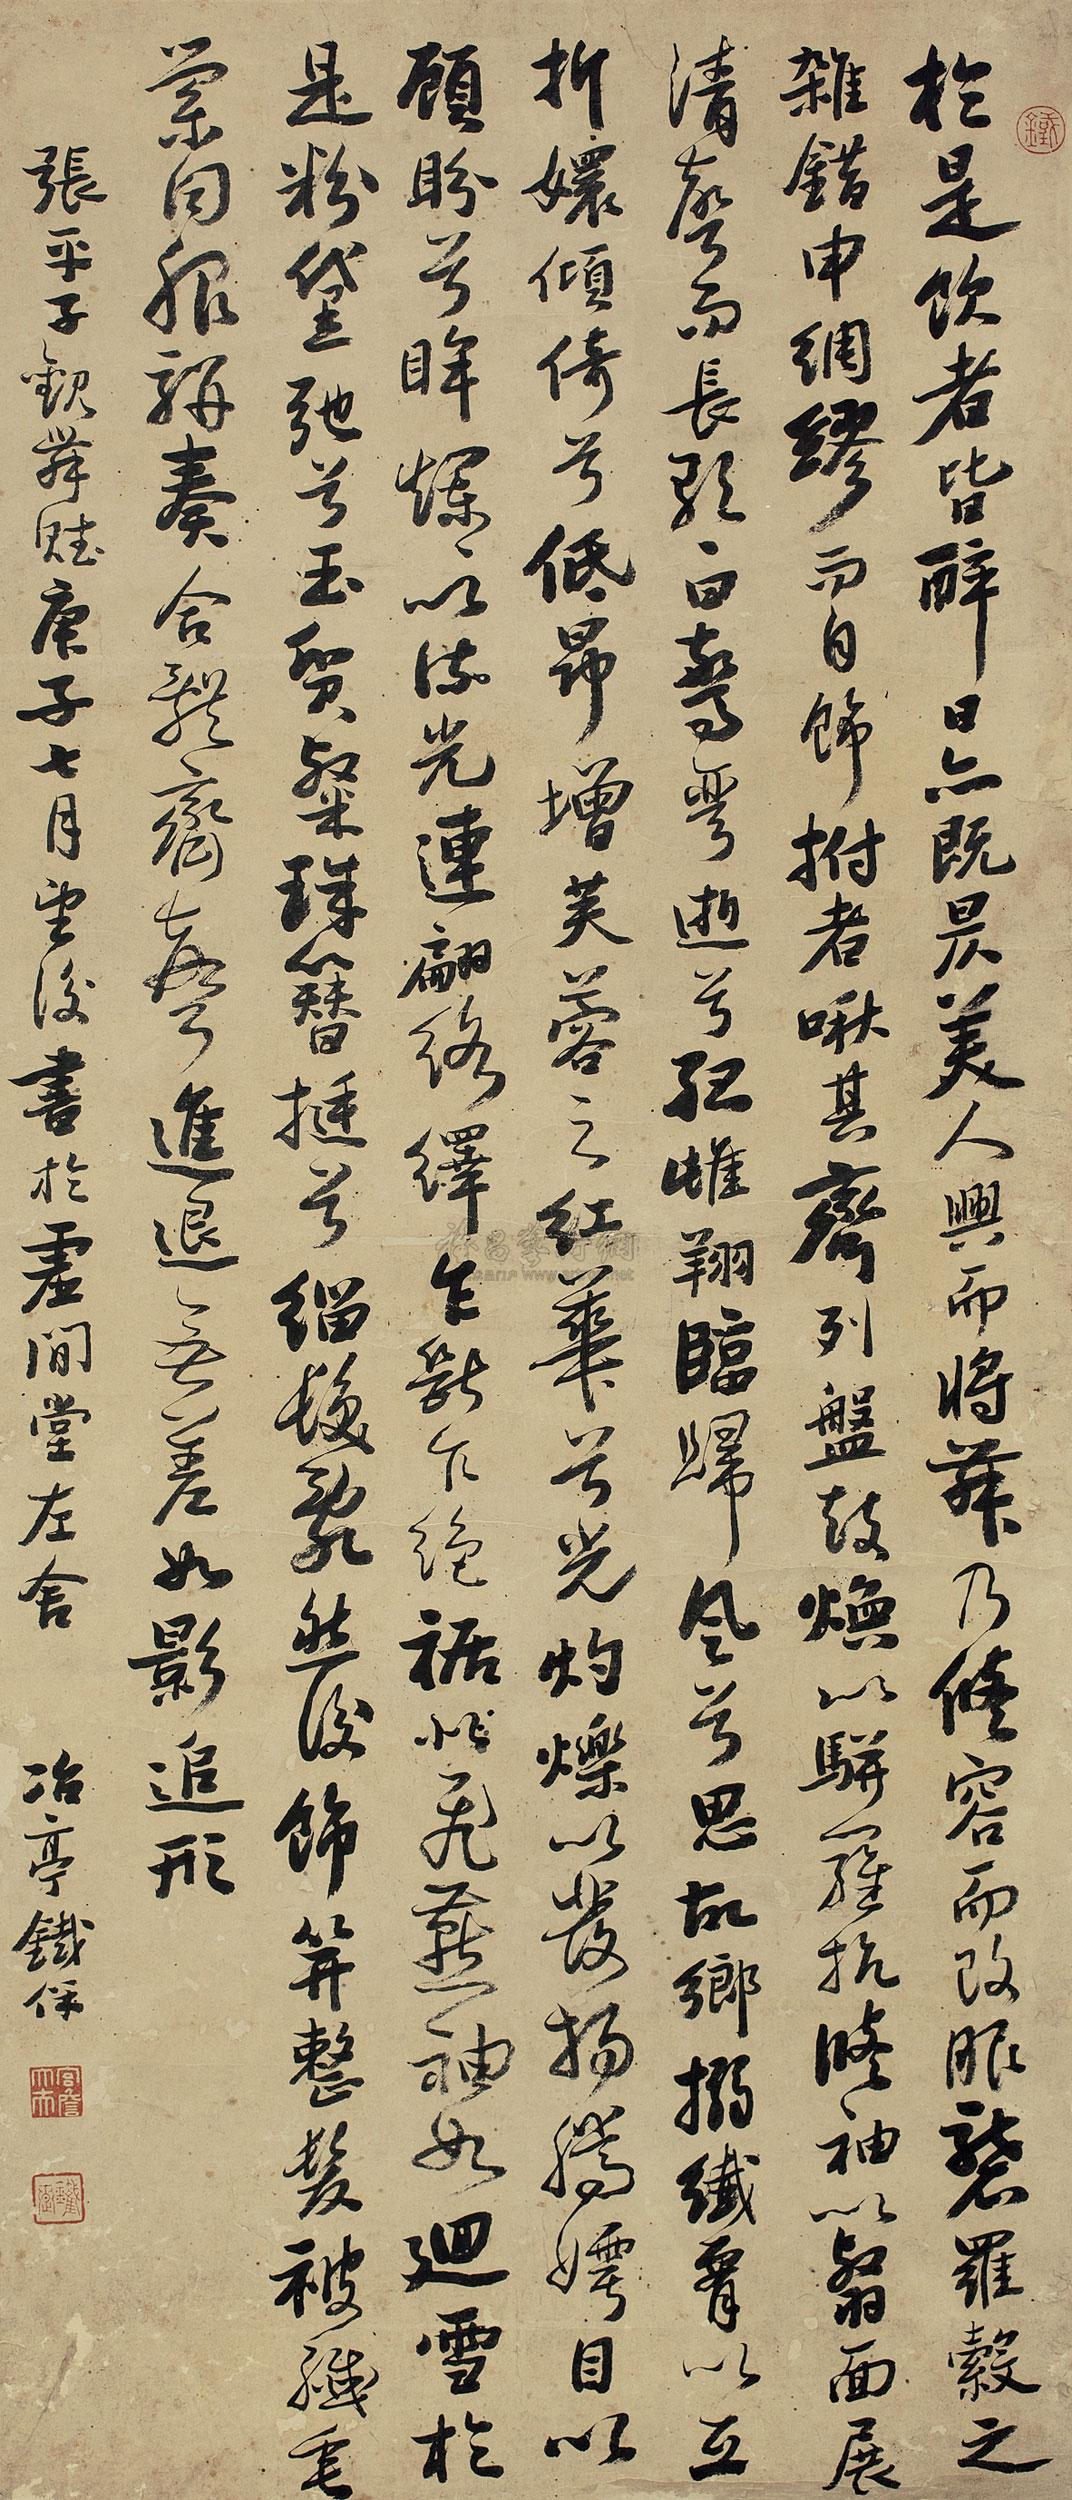 於是飲者皆醉日亦既昃美人興而將舞乃修容而改服襲羅縠之
雜錯申綢繆而自飾拊者啾其齊列盤鼓煥以駢羅抗脩袖以翳面展
清聲而長歌曰驚雄逝兮孤雌翔臨歸風兮思故鄉搦纖腰以互
折嬛傾倚兮低昂增芙蓉之紅華兮光灼爍以發揚騰嫮目以
顧盼兮眸爛爛以流光連翩絡繹乍續乍絕裾似飛燕袖如迴雪於
是粉黛弛兮玉質粲珠簪挺兮緇髮亂然後飾笄整髮被纖垂
縈同服駢奏合體齊聲進退無差如影追形
張平子觀舞賦庚子七月望後書於虛閒堂左舍 冶亭鐵保
鐵